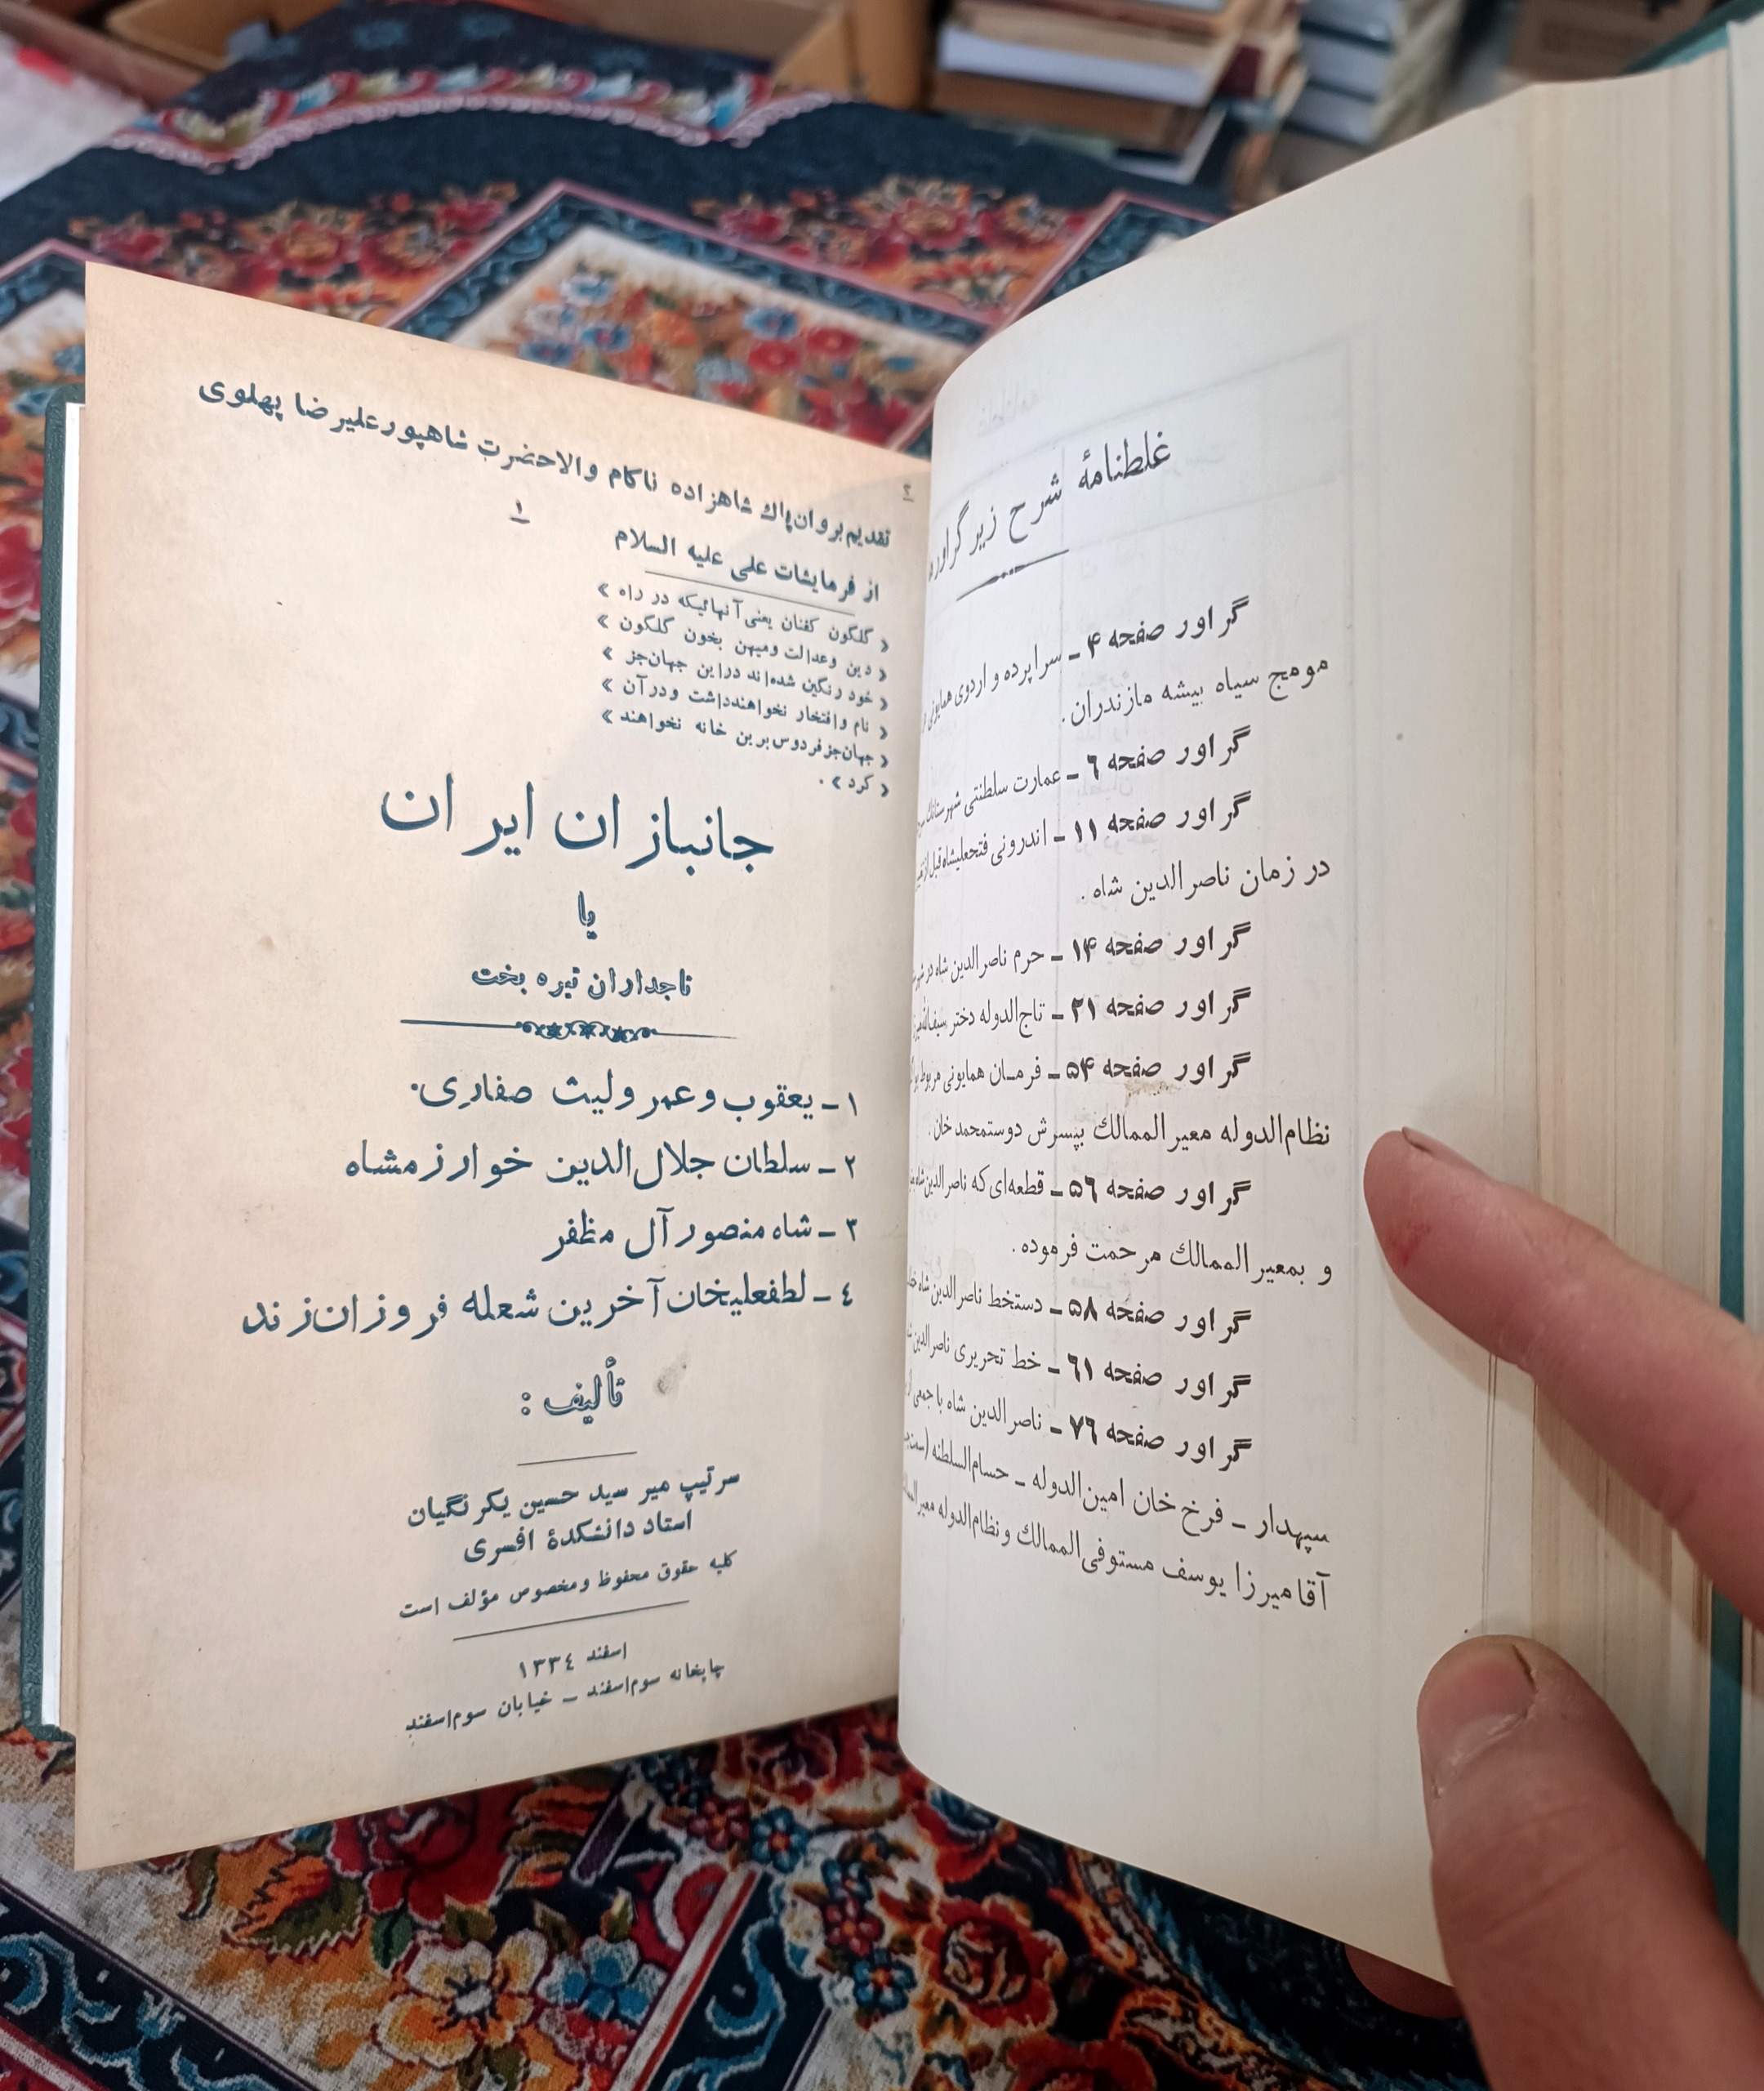 غلطنامهٔ شرح زیر گراور
گراور صفحه ۴ ـ سراپرده و اردوی همایونی
مومج سیاه بیشه مازندران .
گراور صفحه ۶ ـ عمارت سلطنتی شهرستانک
گراور صفحه ۱۱ ـ اندرونی فتحعلیشاه قبل از
در زمان ناصرالدین شاه .
گراور صفحه ۱۴ ـ حرم ناصرالدین شاه در
گراور صفحه ۲۱ ـ تاج‌الدوله دختر سیف‌الله
گراور صفحه ۵۴ ـ فرمان همایونی مربوط
نظام‌الدوله معیرالممالک بپسرش دوستمحمد خان .
گراور صفحه ۵۶ ـ قطعه‌ای که ناصرالدین‌شاه
و بمعیر الممالک مرحمت فرموده .
گراور صفحه ۵۸ ـ دستخط ناصرالدین شاه
گراور صفحه ۶۱ ـ خط تحریری ناصرالدین
گراور صفحه ۷۶ ـ ناصرالدین شاه با جمعی از
سپهدار ـ فرخ خان امین‌الدوله ـ حسام‌السلطنه
آقامیرزا یوسف مستوفی‌الممالک و نظام‌الدوله
۲
تقدیم بروان پاک شاهزاده ناکام والاحضرت شاهپورعلیرضا پهلوی
۱
از فرمایشات علی علیه السلام
« گلگون کفنان یعنی آنهائیکه در راه »
« دین وعدالت ومیهن بخون گلگون »
« خود رنگین شده‌اند دراین جهان‌جز »
« نام وافتخار نخواهندداشت ودرآن »
« جهان‌جزفردوس‌برین خانه نخواهند »
« کرد » .
جانبازان ایران
یا
تاجداران تیره بخت
۱ ـ یعقوب وعمر ولیث صفاری.
۲ ـ سلطان جلال‌الدین خوارزمشاه
۳ ـ شاه منصورآل مظفر
٤ ـ لطفعلیخان آخرین شعله فروزان‌زند
تألیف :
سرتیپ میر سید حسین یکرنگیان
استاد دانشکدهٔ افسری
کلیه حقوق محفوظ ومخصوص مؤلف است
اسفند ۱۳۳٤
چاپخانه سوم‌اسفند ــ خیابان سوم‌اسفند